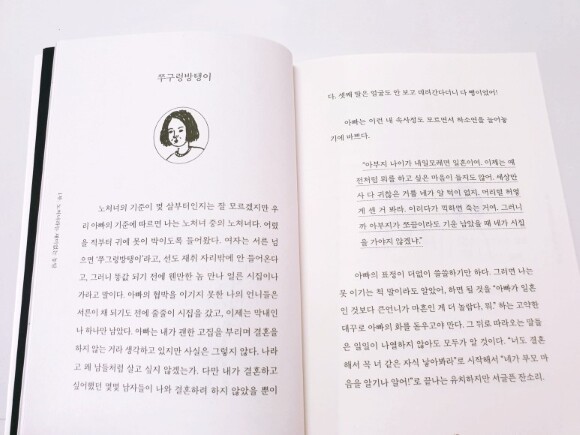 쭈구렁방탱이
노처녀의 기준이 몇 살부터인지는 잘 모르겠지만 우
리 아빠의 기준에 따르면 나는 노처녀 중의 노처녀다. 어렸
을 적부터 귀에 못이 박이도록 들어왔다. 여자는 서른 넘
으면 '쭈그렁방탱이'라고, 선도 재취 자리밖에 안 들어온다
고, 그러니 똥값 되기 전에 웬만한 놈 만나 얼른 시집이나
가라고 말이다. 아빠의 협박을 이기지 못한 나의 언니들은
서른이 채 되기도 전에 줄줄이 시집을 갔고, 이제는 막내인
나 하나만 남았다. 아빠는 내가 괜한 고집을 부리며 결혼을
하지 않는 거라 생각하고 있지만 사실은 그렇지 않다. 나라
고 왜 남들처럼 살고 싶지 않겠는가. 다만 내가 결혼하고
싶어했던 몇몇 남자들이 나와 결혼하려 하지 않았을 뿐이
다. 셋째 딸은 얼굴도 안 보고 데려간다더니 다 뻥이었어!
아빠는 이런 내 속사정도 모르면서 하소연을 늘어놓
기에 바쁘다.
"아부지 나이가 내일모레면 일흔이여. 이제는 예
전처럼 뭐를 하고 싶은 마음이 들지도 않어. 세상만
사 다 귀찮은 거를 내가 말 적이 없지. 머리털 허옇
게 센 거 봐라. 이러다가 끽하면 죽는 거여. 그러니
까 아부지가 쪼끔이라도 기운 남았을 때 네가 시집
을 가야지 않겠냐."
아빠의 표정이 더없이 쓸쓸하기만 하다. 그러면 나는
못 이기는 척 말이라도 말았어, 하면 될 것을 "아빠가 일흔
인 것보다 큰언니가 마흔인 게 더 놀랍다, 뭐." 하는 고약한
대꾸로 아빠의 화를 돋우고야 만다. 그 뒤로 따라오는 말들
은 일일이 나열하지 않아도 모두가 알 것이다. "너도 결혼
해서 꼭 너 같은 자식 낳아봐라"로 시작해서 "네가 부모 마
음을 알기나 알어!"로 끝나는 유치하지만 서글픈 잔소리.